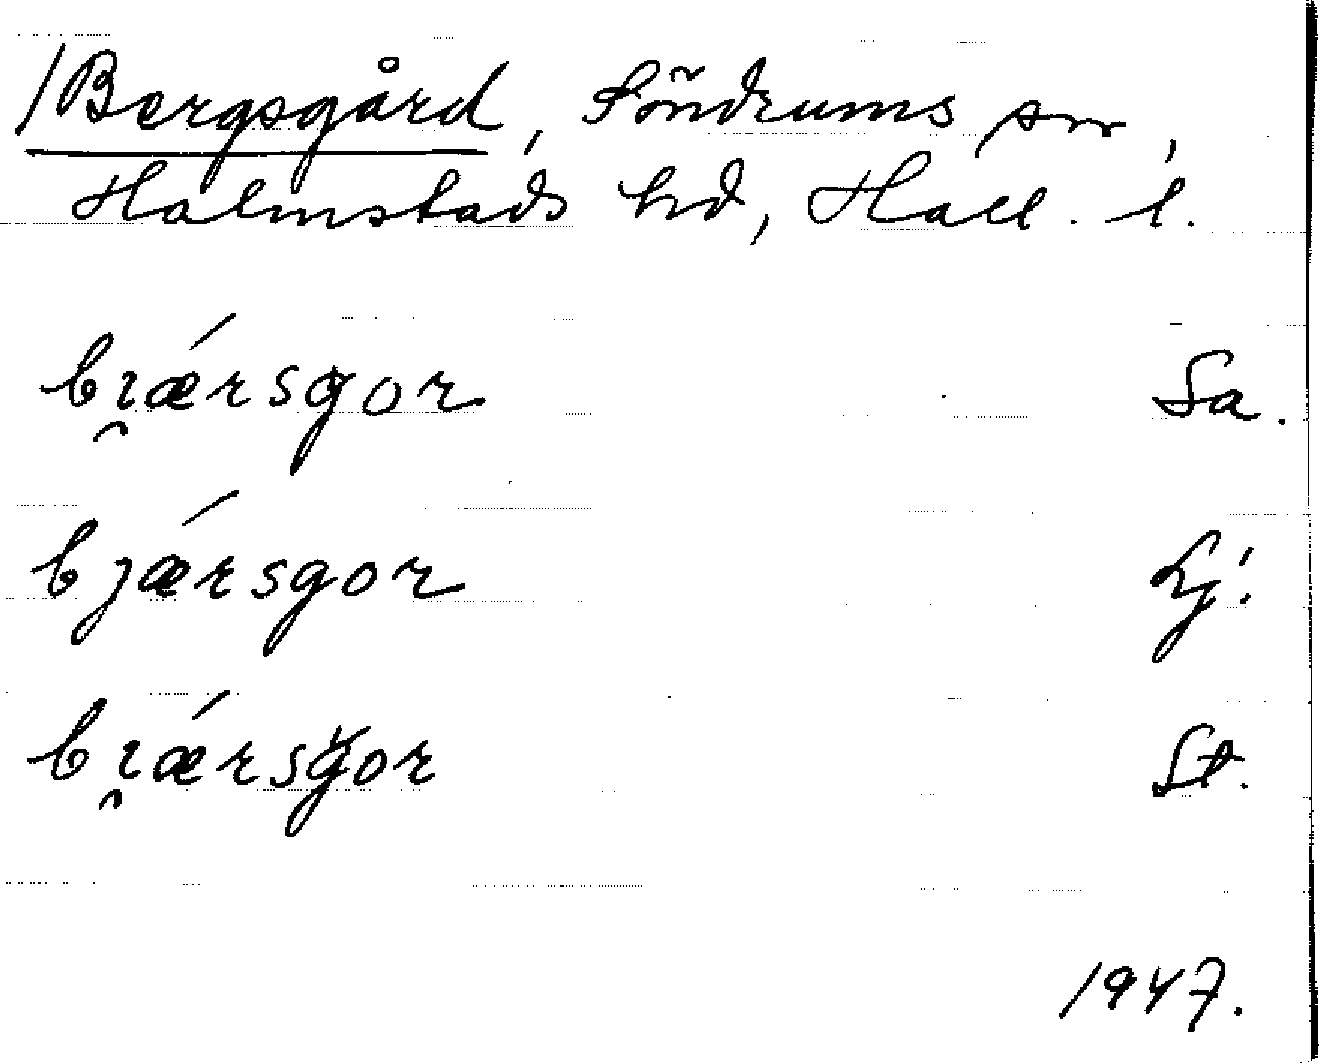 /Bergsgård, Söndrums sn,
Halmstads hd, Hall. l.
bi̯ǽrsgor Sa.
bjǽrsgor Lj.
bi̯ǽrsgor St.
1947.